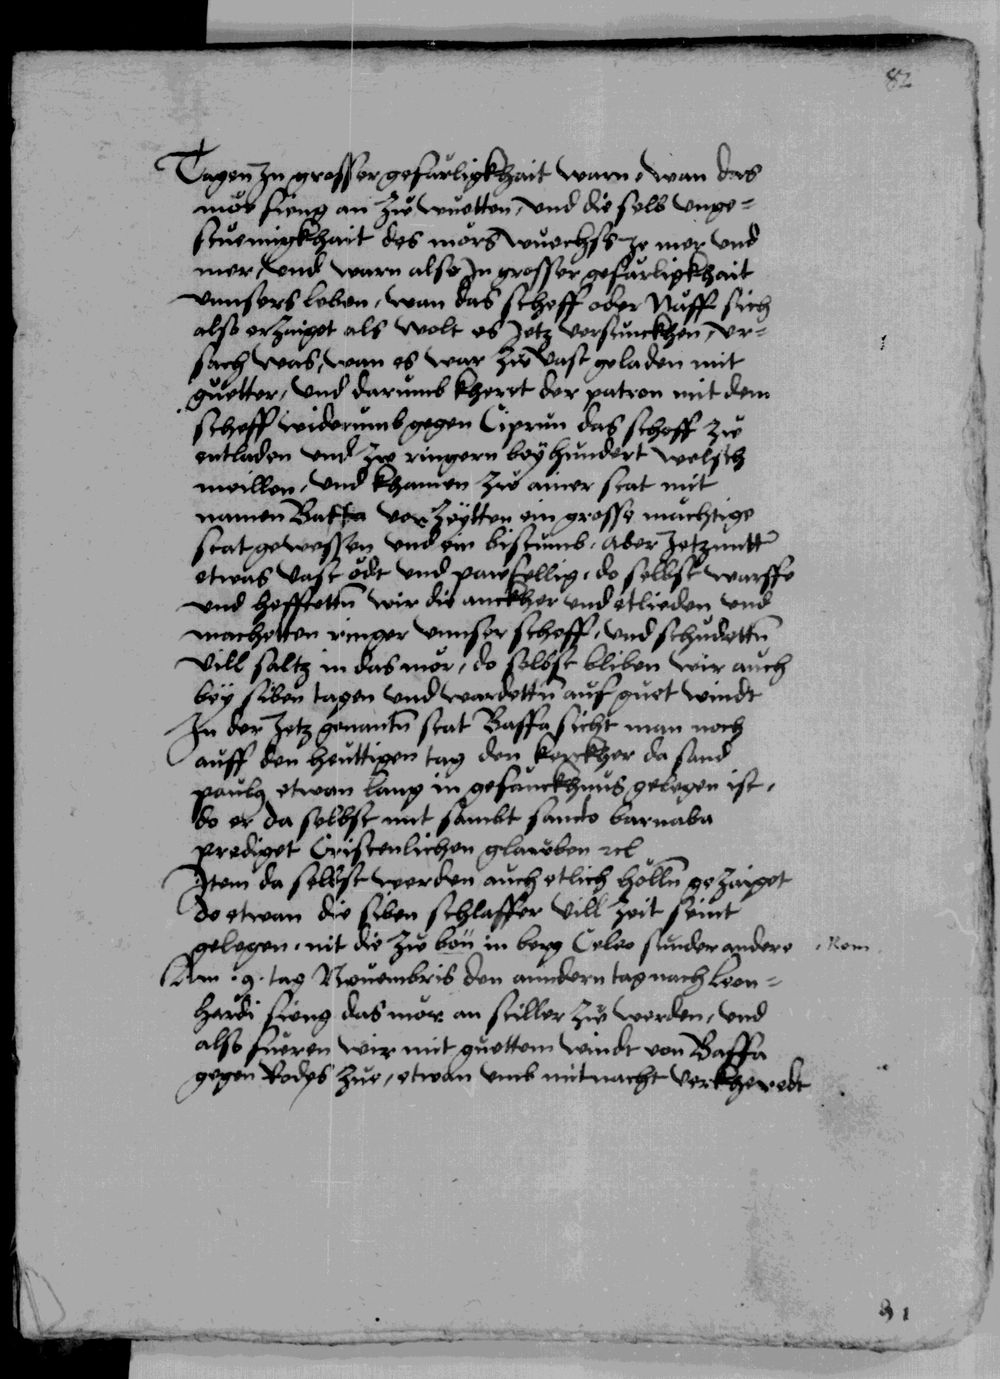 82
Tagen Jn grosser gefarligkhait warn, wan das
mör fieng an zw wuetten, und die selb unge-
stuemigkhait des mörs wuechss ye mer und
mer, und warn also Jn grosser gefarligkhait
unnsers leben, wan das scheff oder Naff sich
also erzaiget als wolt es Jetz versinckhen, vr-
sach was, wan es war zw vast geladen mit
guetter, und darumb kheret der patron mit dem
scheff widerumb gegen Ciprun das scheff zw
entladen und zw ringern bey hundert welsch
meillen, und khamen zw ainer stat mit
namen Baffa vor zeytten ein grosse machtige
stat gewessen und ein bistumb, aber Jetzuntt
etwas vast ödt und pawfellig, do selbst warffe
und hefftettn wir die anckher und etlieden und
machetten ringer unnser scheff, und schudettn
vill saltz in das mör, do selbst bliben wir auch
bey siben tagen und wardettn auf guet windt
Jn der Jetz genantn stat Baffa sicht man noch
auff den heuttigen tag den kerckher da sand
pauls etwan lang in gefanckhnus gelegen ist,
do er da selbst mit sambt sancto barnaba
prediget Cristenlichen glauben rcl
Jtem da selbst werden auch etlich hölln gezaiget
do etwan die siben schlaffer vill zeit seint
gelegen, nit die zw in berg Celeo sunder andere , Rom
Am .9. tag Nouembris den anndern tag nach Leon-
hardi fieng das mör an stiller zw werden, und
also fueren wir mit guettem windt von Baffa
gegen Rodes zue, etwan umb mitnacht verkheredt
81